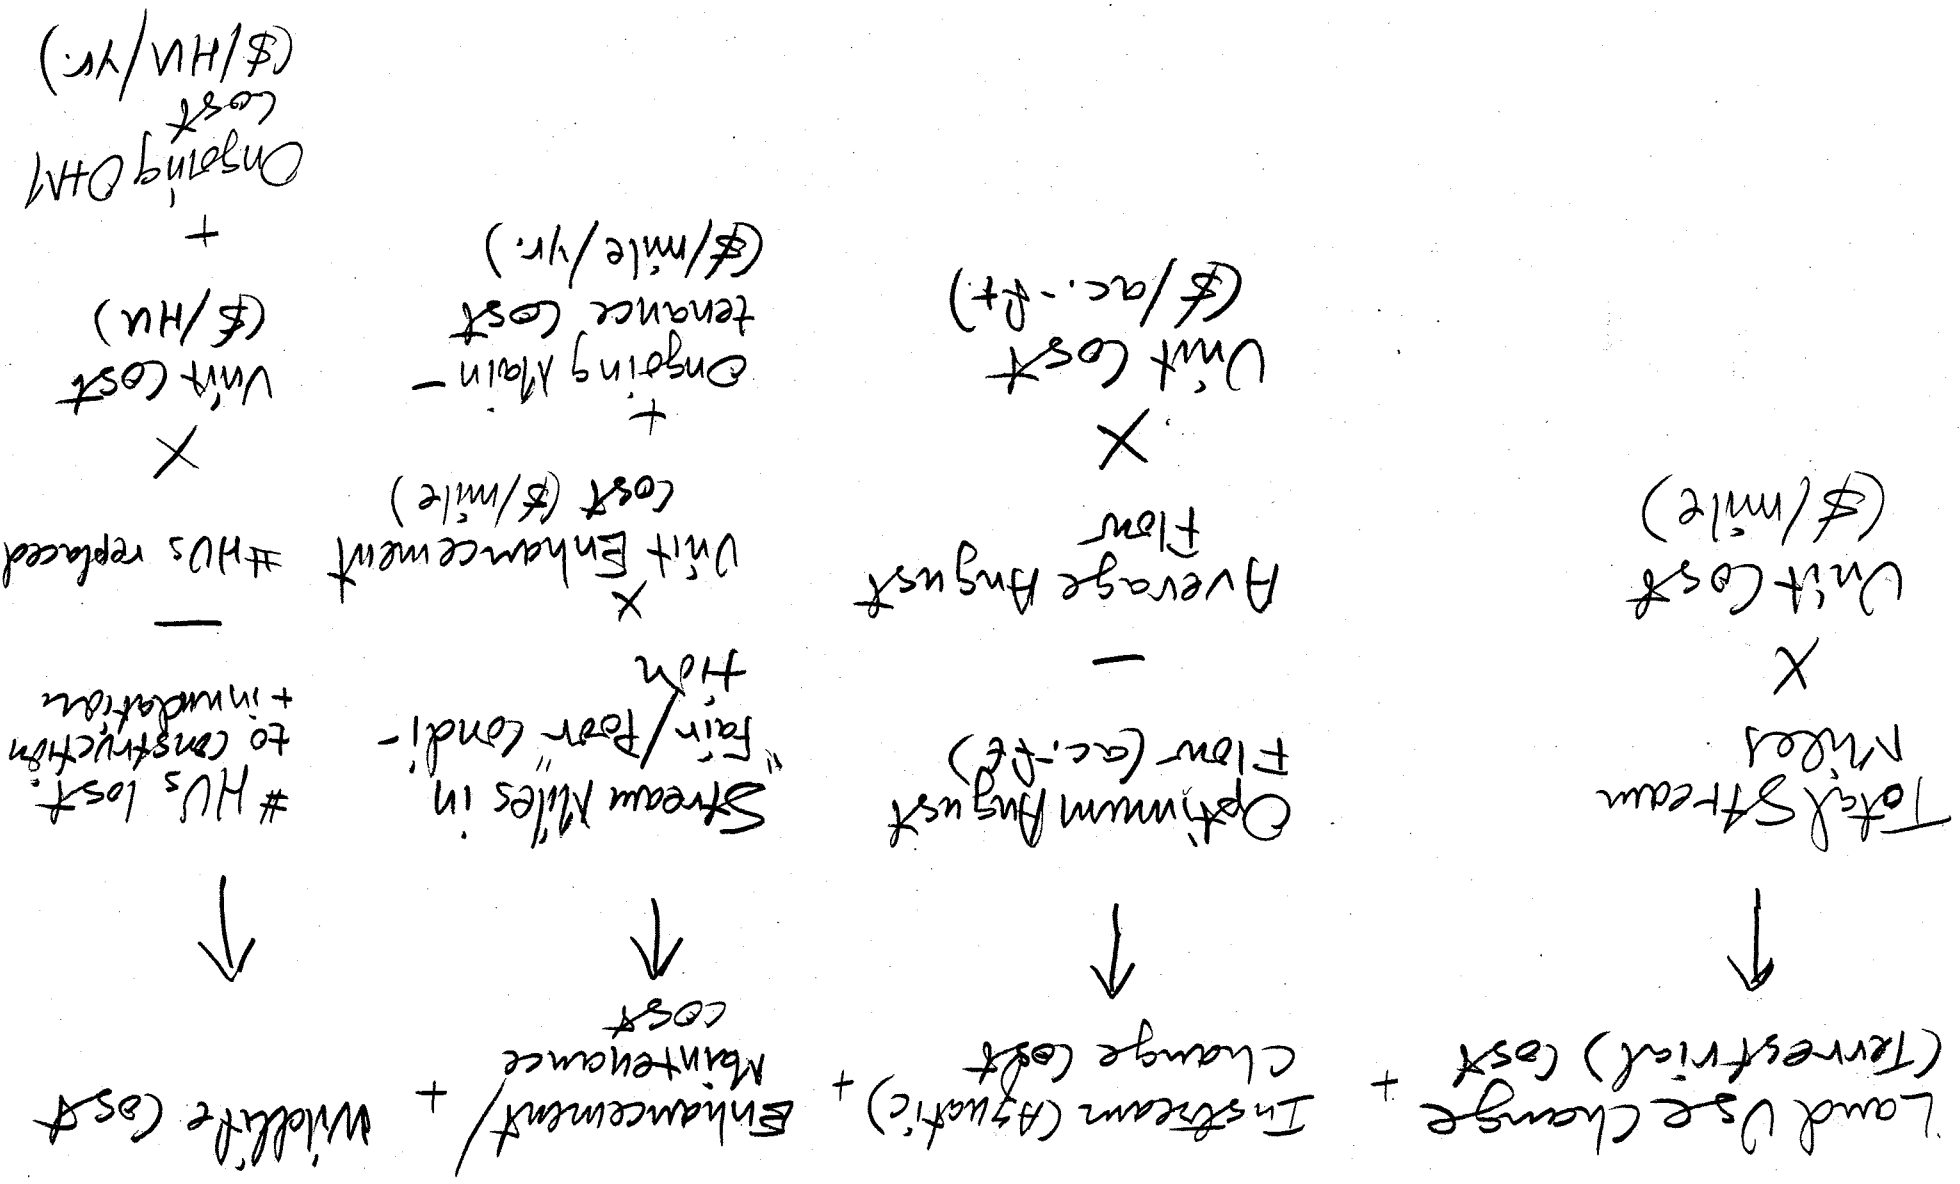 Land Use Change
(Terrestrial) Cost
+
Instream (Aquatic)
Change Cost
+
Enhancement/
Maintenance
cost
+
Wildlife Cost
Total Stream
Miles
X
Unit Cost
($/mile)
Optimum August
Flow (ac.-ft)
—
Average August
Flow
X
Unit Cost
($/ac.-ft.)
Stream Miles in
"Fair/Poor" Condi-
tion
X
Unit Enhancement
Cost ($/mile)
+
Ongoing Main-
tenance Cost
($/mile/yr.)
# HUs lost
to construction
+ inundation
—
#HUs replaced
X
Unit Cost
($/HU)
+
Ongoing O+M
Cost
($/HU/yr.)